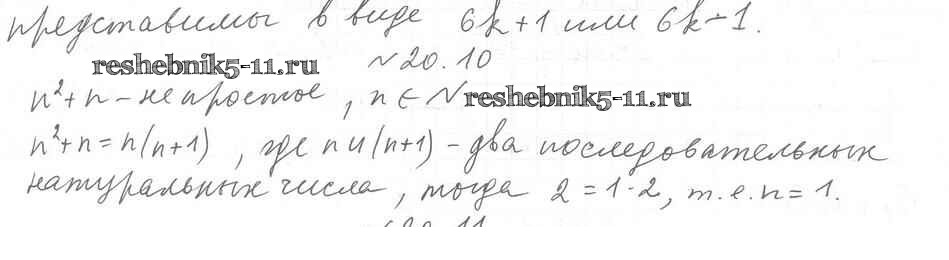 представимы в виде 6k+1 или 6k-1.
reshebnik5-11.ru
№20.10
n²+n - не простое, n ∈ N
reshebnik5-11.ru
n²+n = n(n+1), где n и (n+1) - два последовательных
натуральных числа, тогда 2 = 1·2, т.е. n = 1.